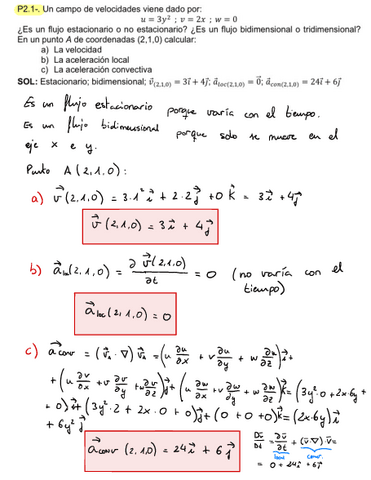 P2.1-. Un campo de velocidades viene dado por:
u = 3y² ; v = 2x ; w = 0
¿Es un flujo estacionario o no estacionario? ¿Es un flujo bidimensional o tridimensional?
En un punto A de coordenadas (2,1,0) calcular:
a) La velocidad
b) La aceleración local
c) La aceleración convectiva
SOL: Estacionario; bidimensional; v⃗(2,1,0) = 3i⃗ + 4j⃗; a⃗loc(2,1,0) = 0⃗; a⃗con(2,1,0) = 24i⃗ + 6j⃗
Es un flujo estacionario porque varía con el tiempo.
Es un flujo bidimensional porque solo se mueve en el
eje x e y.
Punto A (2,1,0):
a) v⃗ (2,1,0) = 3·1² i⃗ + 2·2 j⃗ + 0 k⃗ = 3i⃗ + 4j⃗
v⃗ (2,1,0) = 3i⃗ + 4j⃗
b) a⃗loc(2,1,0) = ∂v⃗(2,1,0)/∂t = 0 (no varía con el
tiempo)
a⃗loc(2,1,0) = 0
c) a⃗conv = (v⃗A · ∇) v⃗A = (u ∂u/∂x + v ∂u/∂y + w ∂u/∂z) i⃗ +
+ (u ∂v/∂x + v ∂v/∂y + w ∂v/∂z) j⃗ + (u ∂w/∂x + v ∂w/∂y + w ∂w/∂z) k⃗ = (3y²·0 + 2x·6y +
+ 0) i⃗ + (3y²·2 + 2x·0 + 0) j⃗ + (0 + 0 + 0) k⃗ = (2x·6y) i⃗
+ 6y² j⃗
a⃗conv (2,1,0) = 24i⃗ + 6j⃗
Dv⃗/Dt = ∂v⃗/∂t + (v⃗·∇) v⃗ =
local conv.
= 0 + 24i⃗ + 6j⃗